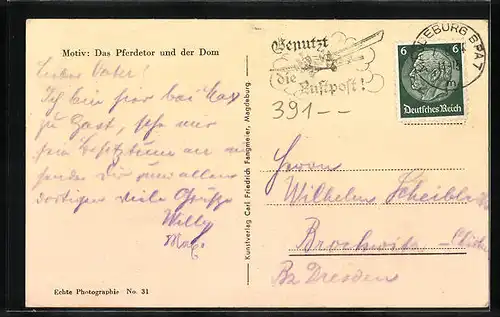 Motiv: Das Pferdetor und der Dom
Lieber Vater!
Ich bin hier bei Max
zu Gast, sehe mir
sein Besitztum an und
sende Dir und allen
dortigen viele Grüße
Willy
Max.
Echte Photographie No. 31
Kunstverlag Carl Friedrich Fangmeier, Magdeburg
Benutzt
die
Luftpost!
391--
MAGDEBURG BPA 7
6 6
Deutsches Reich
Herrn
Wilhelm
Brockwitz
Bz Dresden